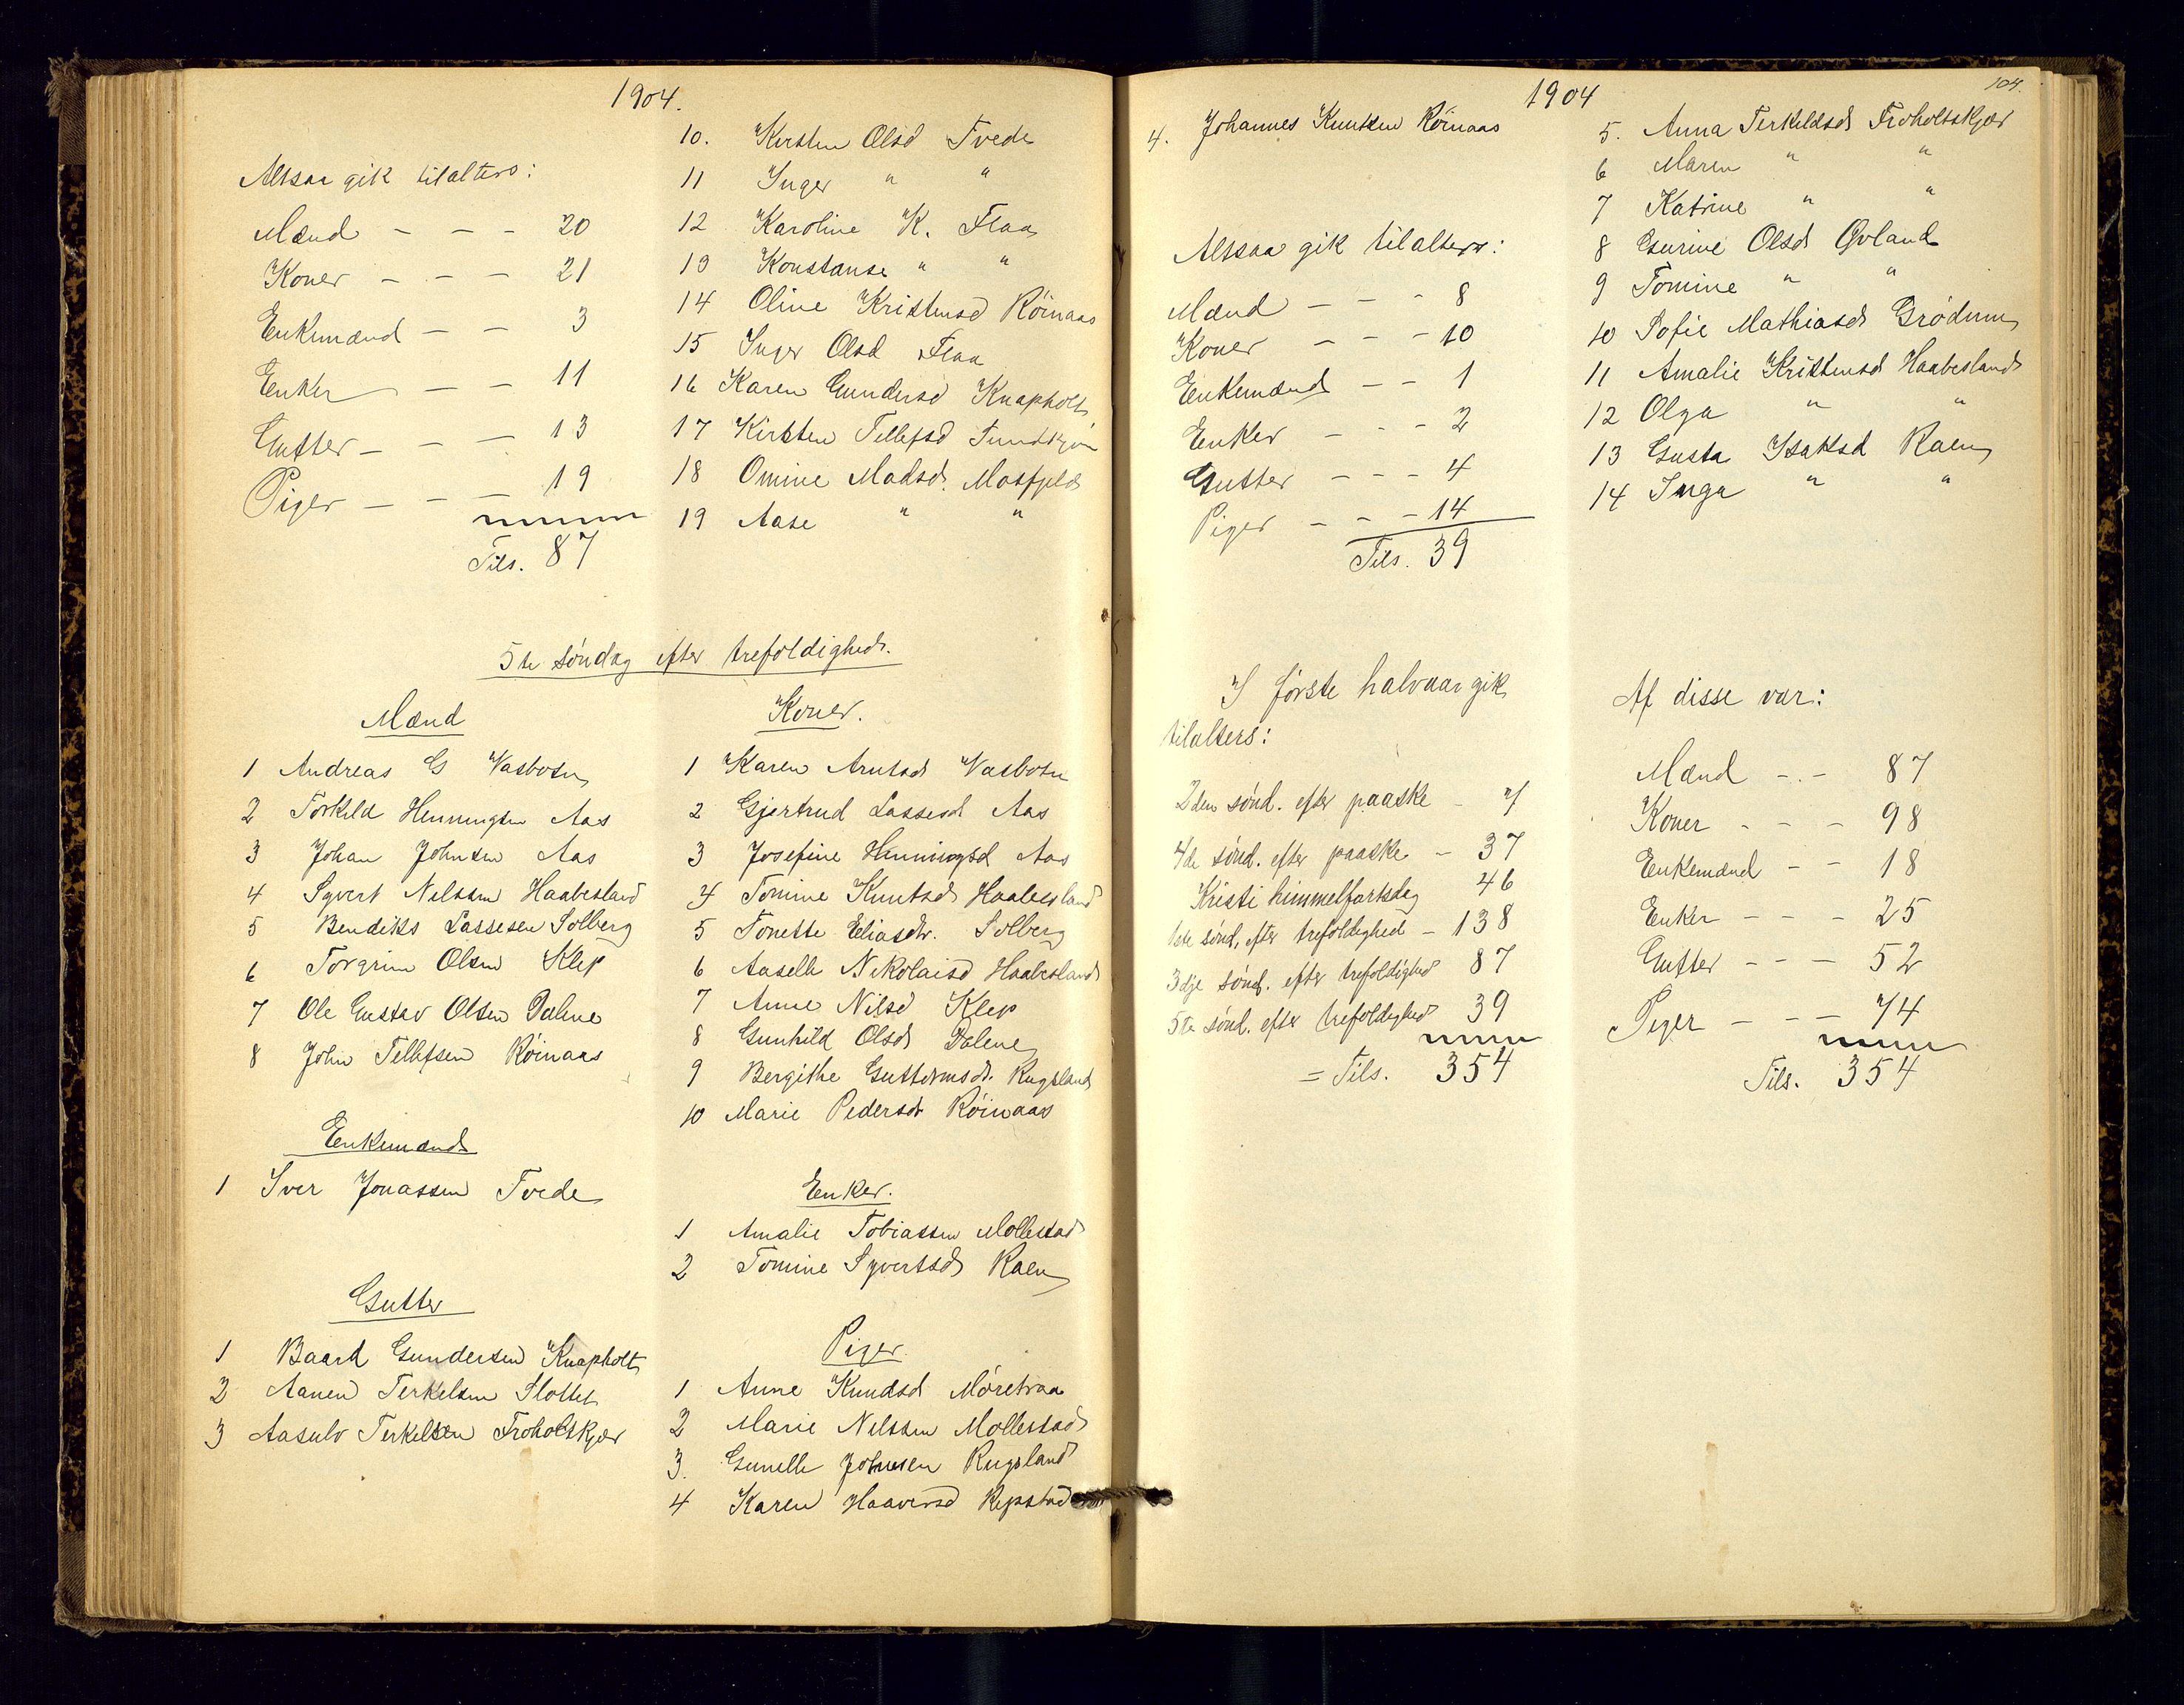 1904.
Altsaa gik tilalters:
Mænd - - - 20
Koner - - - 21
Enkemænd - - 3
Enker - - 11
Gutter - - - 13
Piger - - - 19
Tils. 87
10. Kirsten Olsd Tvede
11 Inger " "
12 Karoline K. Flaa
13 Konstanse " "
14 Oline Kristensd Röinaas
15 Inger Olsd Flaa
16 Karen Gundersd Knapholt
17 Kirsten Tellefsd
18 Omine Madsd. Mosfjeld
19 Aase " "
5te söndag efter trefoldighed.
Mænd
1 Andreas G Vasbotn
2 Torkild Henningsen Aas
3 Johan Johnsen Aas
4 Syvert Nilssen Haabesland
5 Bendiks Lassesen Solberg
6 Torgrim Olsen Klep
7 Ole Gustav Olsen Dalene
8 John Tellefsen Röinaas
Enkemænd
1 Iver Jonassen Tvede
Gutter
1 Baard Gundersen Knapholt
2 Aanen Terkelsen Slottet
3 Aasulv Terkelsen Froholtskjær
Koner.
1 Karen Arntsd Vasbotn
2 Gjertrud Lassesd Aas
3 Josefine Henningsd Aas
4 Tomine Knutsd Haabesland
5 Tonette Eliasdtr. Solberg
6 Aaselle Nikolaisd Haabesland
7 Anne Nilsd Klep
8 Gunhild Olsd Dalene
9 Bergithe Guttormsd. Rugsland
10 Marie Pedersd Röinaas
Enker.
1 Amalie Tobiassen Mollestad
2 Tomine Syvertsd Raen
Piger
1 Anne Knudsd Möretraa
2 Marie Nilssen Mollestad
3. Gunelle Johnsen Rugsland
4 Karen Haaversd Repstad
1904
104.
4. Johannes Knutsen Röinaas
Altsaa gik tilalters:
Mænd - - - 8
Koner - - - 10
Enkemænd - - 1
Enker - - - 2
Gutter - - - 4
Piger - - - 14
Tils. 39
5. Anna Terkildsd Froholtskjær
6 Maren " "
7 Katrine " "
8 Gurine Olsd Övland
9 Tomine " "
10 Sofie Mathiasd Grödum
11 Amalie Kristensd Haabesland
12 Olga " "
13 Gusta Isaksd Raen
14 Inga " "
I förste halvaar gik
tilalters:
2den sönd. efter paaske - 7
4de sönd. efter paaske - 37
Kristi himmelfartsdag 46
1ste sönd. efter trefoldighed - 138
3dje sönd. efter trefoldighed 87
5te sönd. efter trefoldighed 39
= Tils. 354
Af disse var:
Mænd - - - 87
Koner - - - 98
Enkemænd - - 18
Enker - - - 25
Gutter - - - 52
Piger - - - 74
Tils. 354